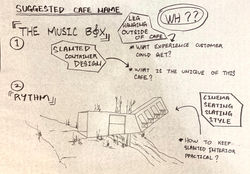 SUGGESTED CAFE NAME
①
"THE MUSIC BOX"
SLANTED
CONTAINER
DESIGN
LEG
HANGING
OUTSIDE
OF CAFE
WH??
* WHAT EXPERIENCE CUSTOMER
COULD GET?
* WHAT IS THE UNIQUE OF THIS
CAFE?
②
"RYTHM"
CINEMA
SEATING
SLATING
STYLE
* HOW TO KEEP
SLANTED INTERIOR
PRACTICAL?